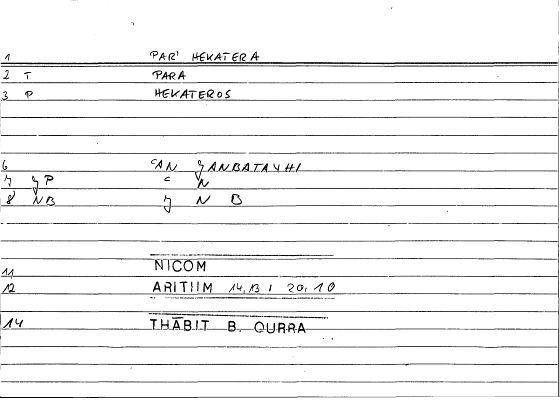 1 PAR' HEKATERA
2 T PARA
3 P HEKATEROS
6 ʿAN ǧANBATAYHI
7 ǧP ʿ N
8 NB ǧ N B
11 NICOM
12 ARITIIM 14,13 ; 20,10
14 THĀBIT B. QURRA